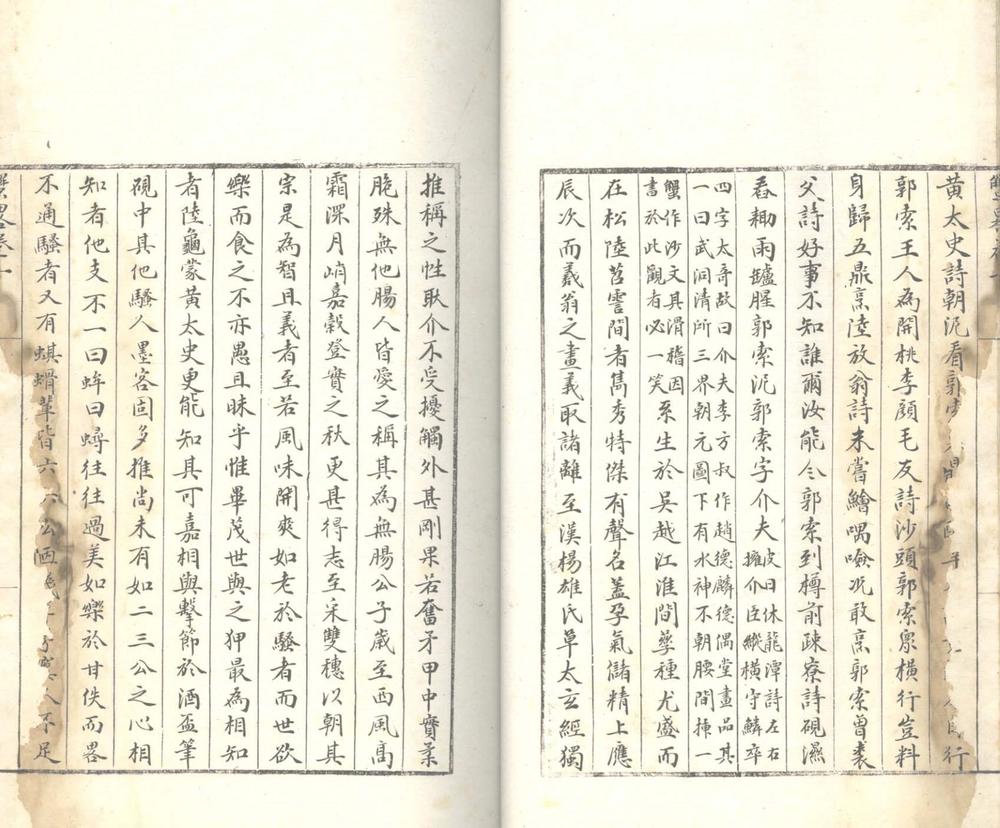 黃太史詩朝泥看郭索
行
郭索王人為開桃李顔毛友詩沙頭郭索衆橫行豈料
身歸五鼎烹陸放翁詩未嘗鱠喁噞况敢烹郭索曾裘
父詩好事不知誰爾汝能令郭索到樽前疎寮詩硯濕
春耡雨罏腥郭索泥郭索字介夫皮日休龍潭詩左右擁介臣縱橫守鱗卒
四字太奇故曰介夫李方叔作趙德麟德偶堂畫品其
一曰武洞清所三界朝元圖下有水神不朝腰間揷一
蟹作沙文具滑稽因
書於此觀者必一笑系生於吳越江淮間犖種尤盛而
在松陸苕霅間者雋秀特傑有聲名盖孕氣儲精上應
辰次而羲翁之畫義取諸離至漢楊雄氏草太玄經獨
推稱之性耿介不受擾觸外甚剛果若奮矛甲中實柔
脆殊無他腸人皆愛之稱其為無腸公子歲至西風高
霜深月峭嘉穀登實之秋更甚得志至采雙穗以朝其
宗是為智且義者至若風味開爽如老於騷者而世欲
樂而食之不亦愚且昧乎惟畢茂世與之狎最為相知
者陸龜蒙黃太史更能知其可嘉相與擊節於酒盃筆
硯中其他騷人墨客固多推尚未有如二三公之心相
知者他支不一曰蛑曰蟳往往過美如樂於甘佚而畧
不通騷者又有蜞蝟輩皆六
人不足